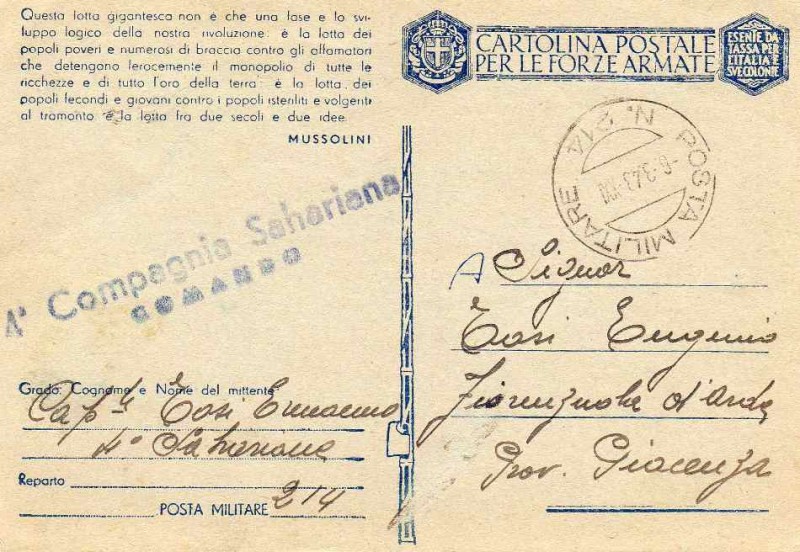 Questa lotta gigantesca non è che una fase e lo svi-
luppo logico della nostra rivoluzione: è la lotta dei
popoli poveri e numerosi di braccia contro gli affamatori
che detengono ferocemente il monopolio di tutte le
ricchezze e di tutto l'oro della terra: è la lotta dei
popoli fecondi e giovani contro i popoli isteriliti e volgenti
al tramonto è la lotta fra due secoli e due idee.
MUSSOLINI
CARTOLINA POSTALE
PER LE FORZE ARMATE
ESENTE DA
TASSA PER
L'ITALIA E
SUE COLONIE
POSTA MILITARE N. 214
-6.3.43.XXI
4ª Compagnia Sahariana
COMANDO
A Signor
Tosi Eugenio
Fiorenzuola d'Arda
Prov. Piacenza
Grado, Cognome e Nome del mittente
Tosi
4ª Sahariana
Reparto
POSTA MILITARE 214